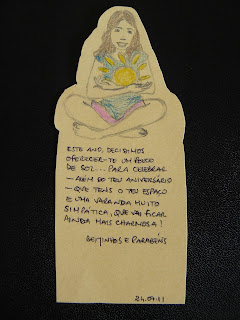 ESTE ANO, DECIDIMOS
OFERECER-TE UM POUCO
DE SOL... PARA CELEBRAR
- ALÉM DO TEU ANIVERSÁRIO
- QUE TENS O TEU ESPAÇO
E UMA VARANDA MUITO
SIMPÁTICA, QUE VAI FICAR
AINDA MAIS CHARMOSA!
BEIJINHOS E PARABÉNS
24.07.11